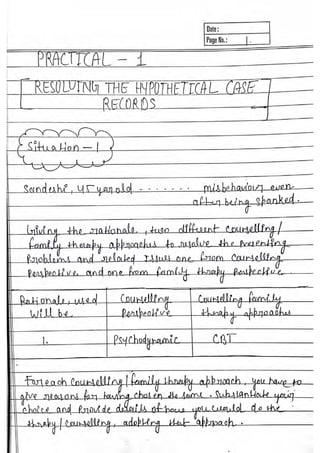 Date :
Page No. : 1.
PRACTICAL - 1
RESOLVING THE HYPOTHETICAL CASE
RECORDS
Situation - 1
Sandeshi, 45 year old - - - - - - - misbehaviour even
after being spanked.
Giving the rationale, two different counselling /
family therapy approaches to resolve the presenting
Problems and related Issues one from Counselling
Perspective and one from family therapy Perspective
Rationale, used
will be
Counselling
Perspective
Counselling family
therapy approaches
1.
Psychodynamic
CBT
For each Counselling / family therapy approach, you have to
give reasons for having chosen the same. Substantiate your
choice and Provide details of how you would do the
therapy / counselling, adopting that approach.